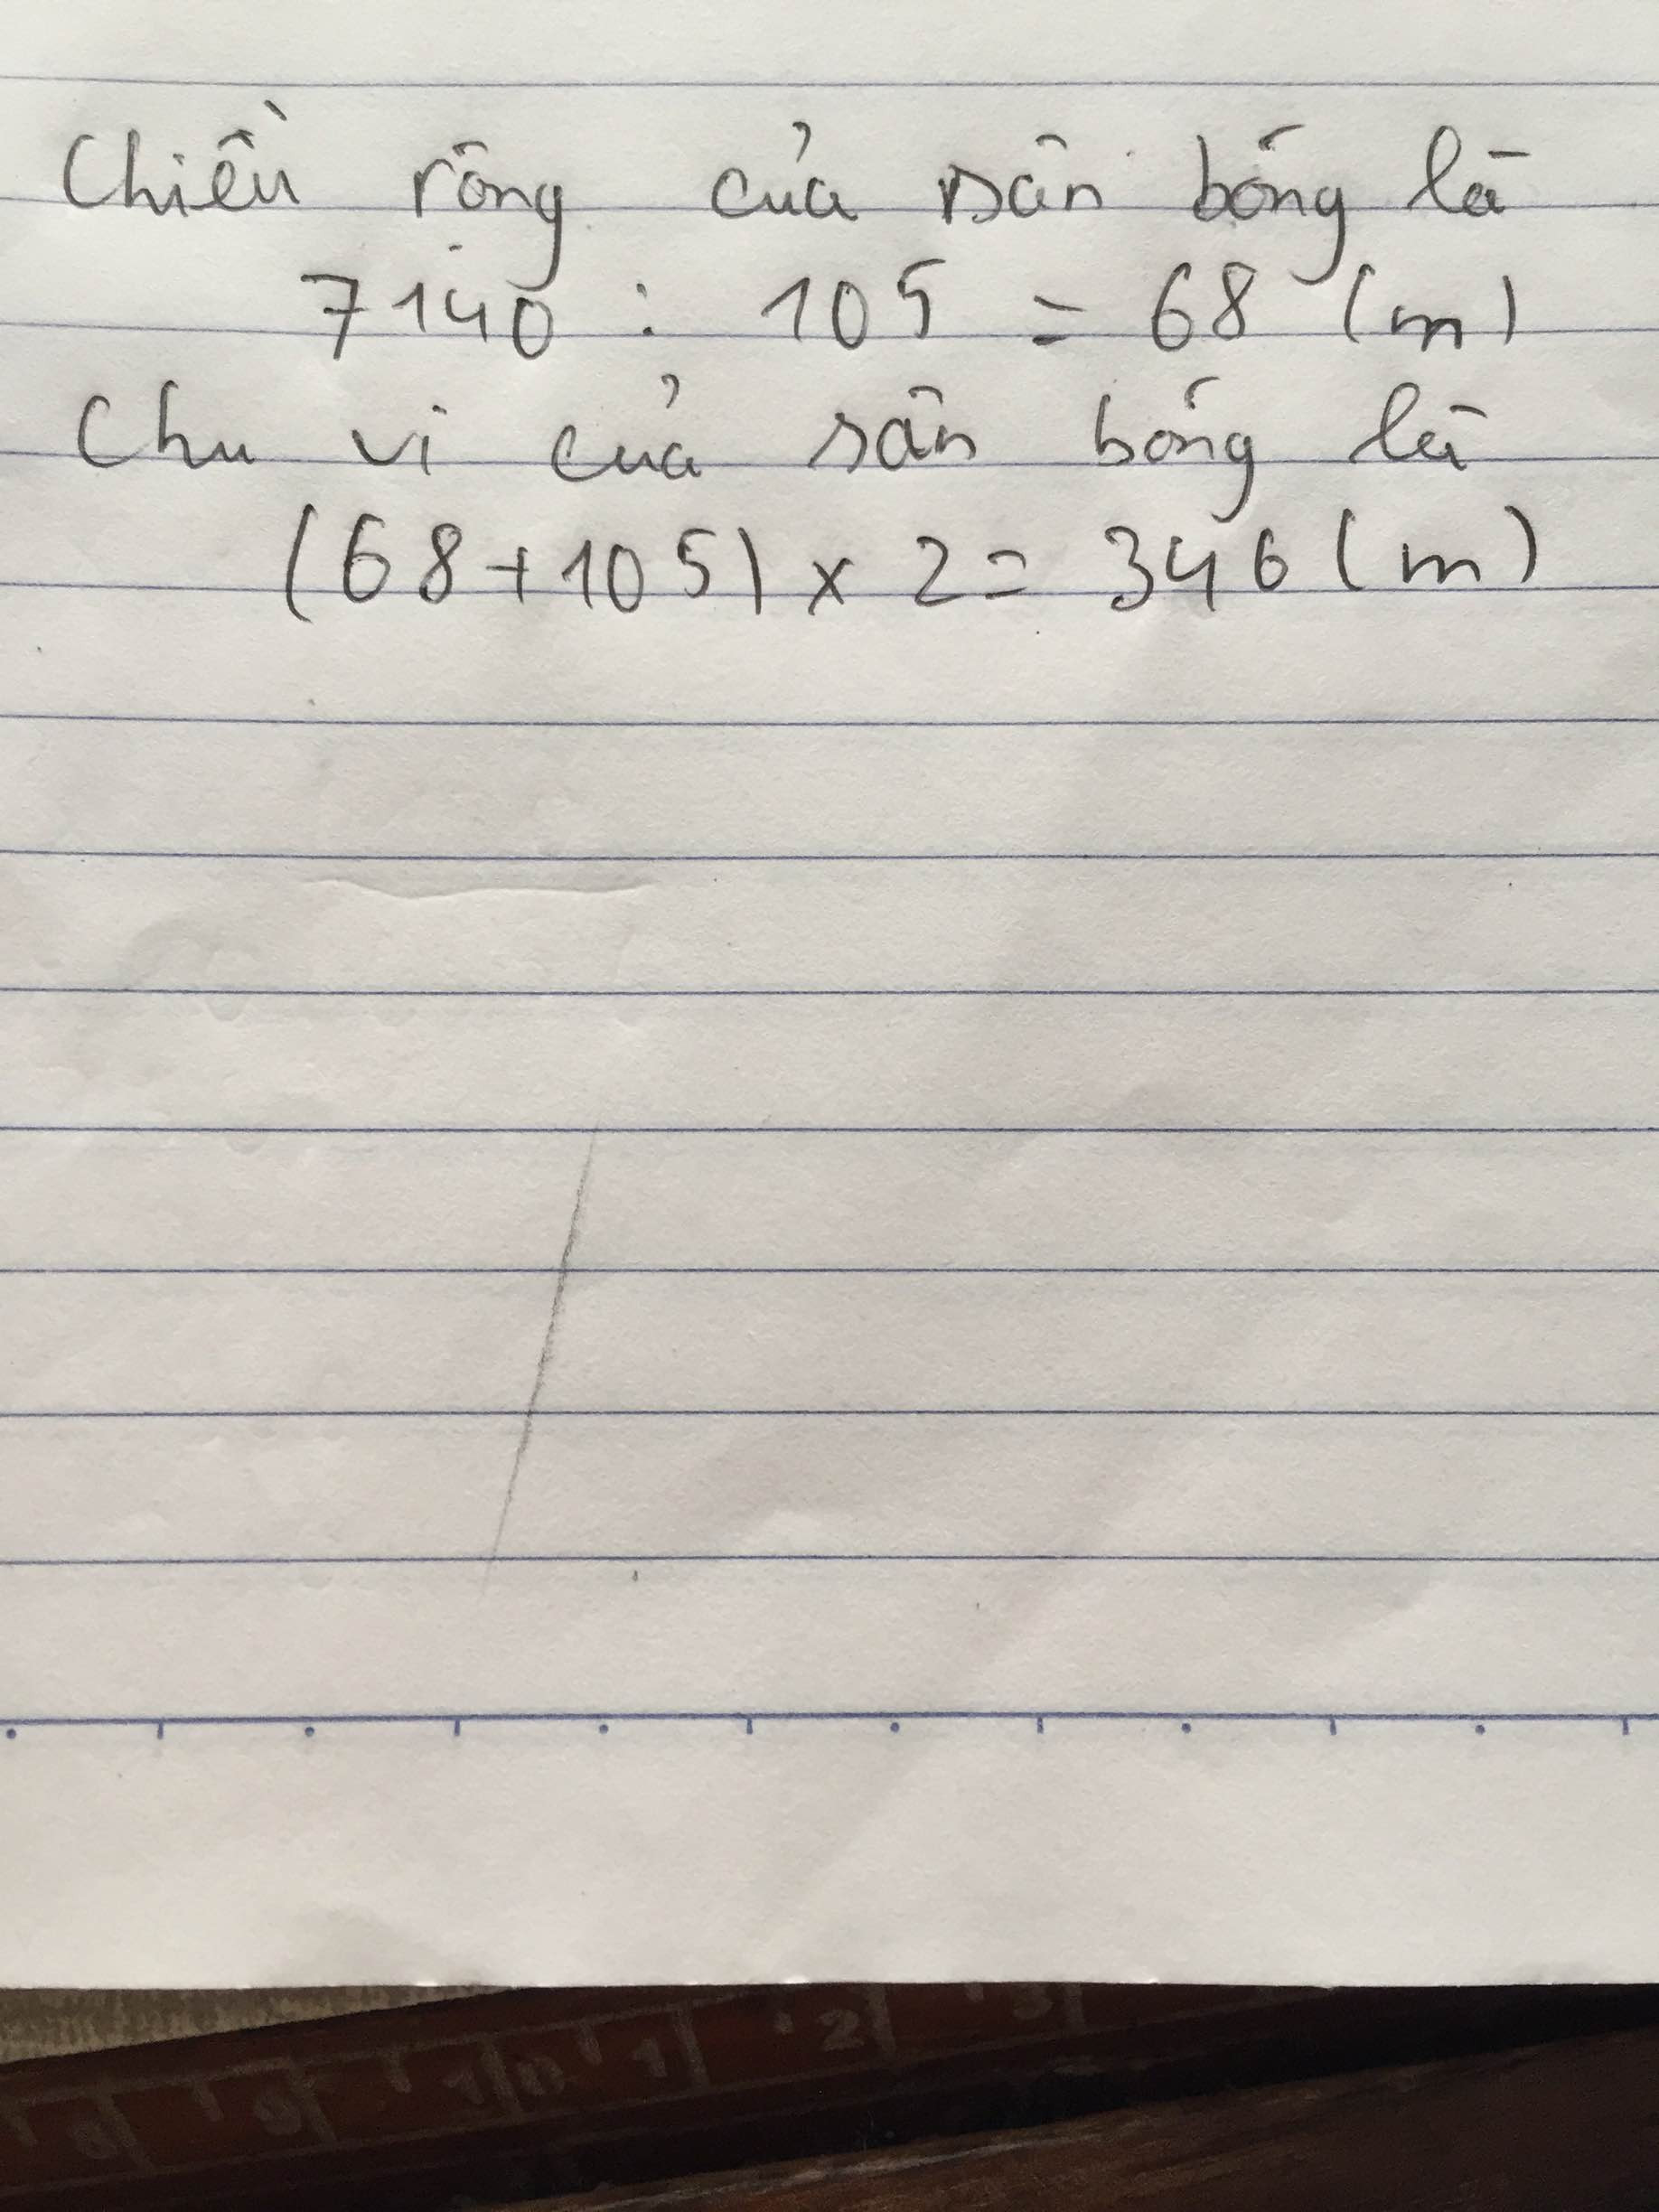 Chiều rộng của sân bóng là
7140 : 105 = 68 (m)
Chu vi của sân bóng là
(68+105) x 2 = 346 (m)
8 9 10 1 2 3